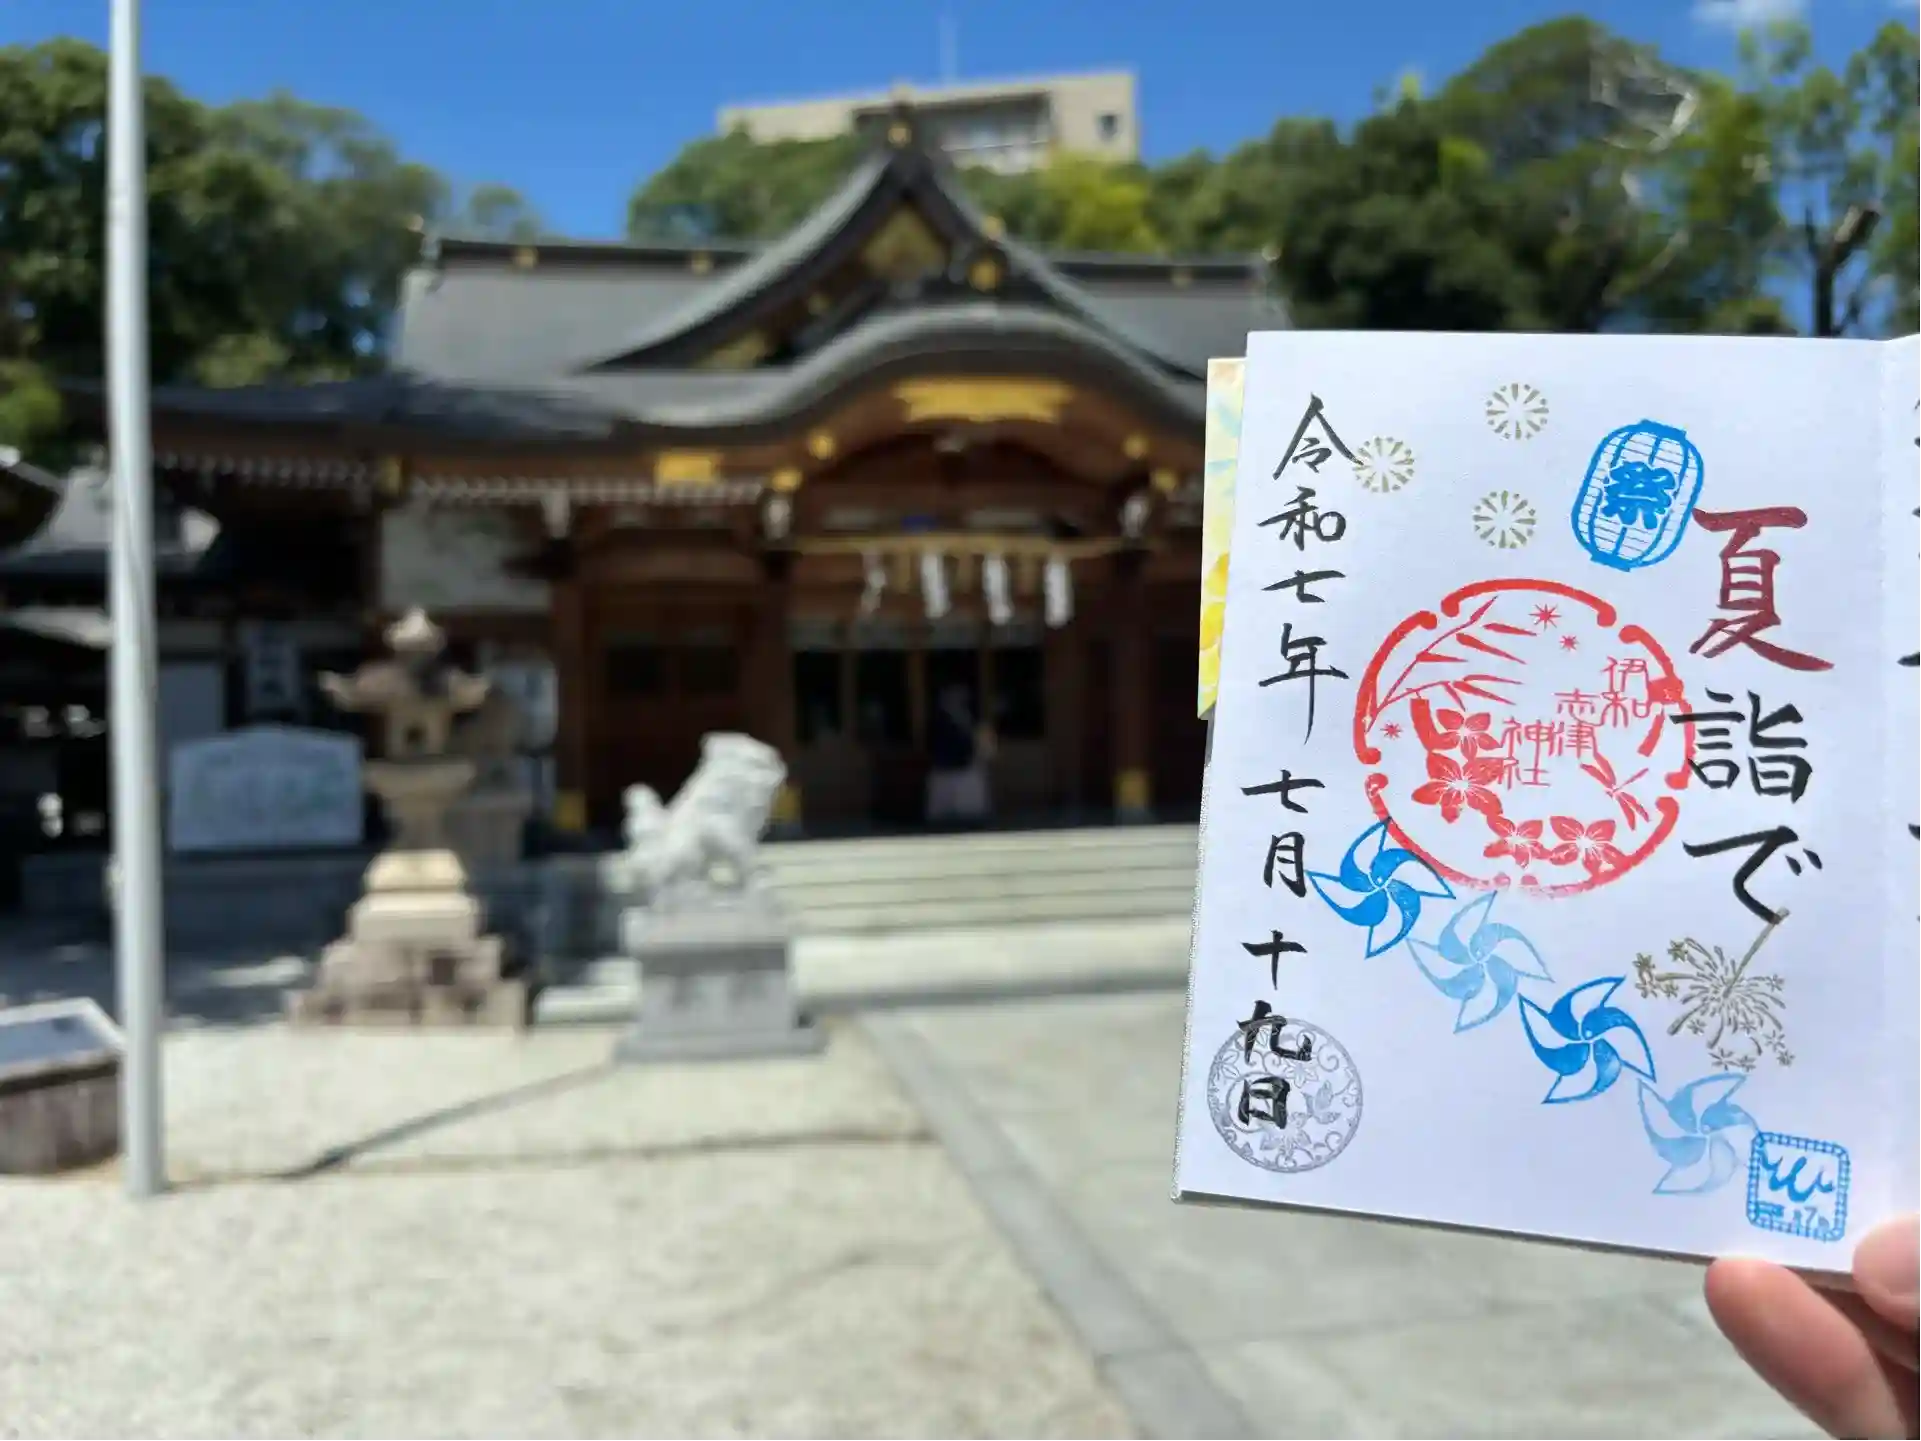 夏詣で
祭
伊和
志津
神社
令和七年 七月 十九日